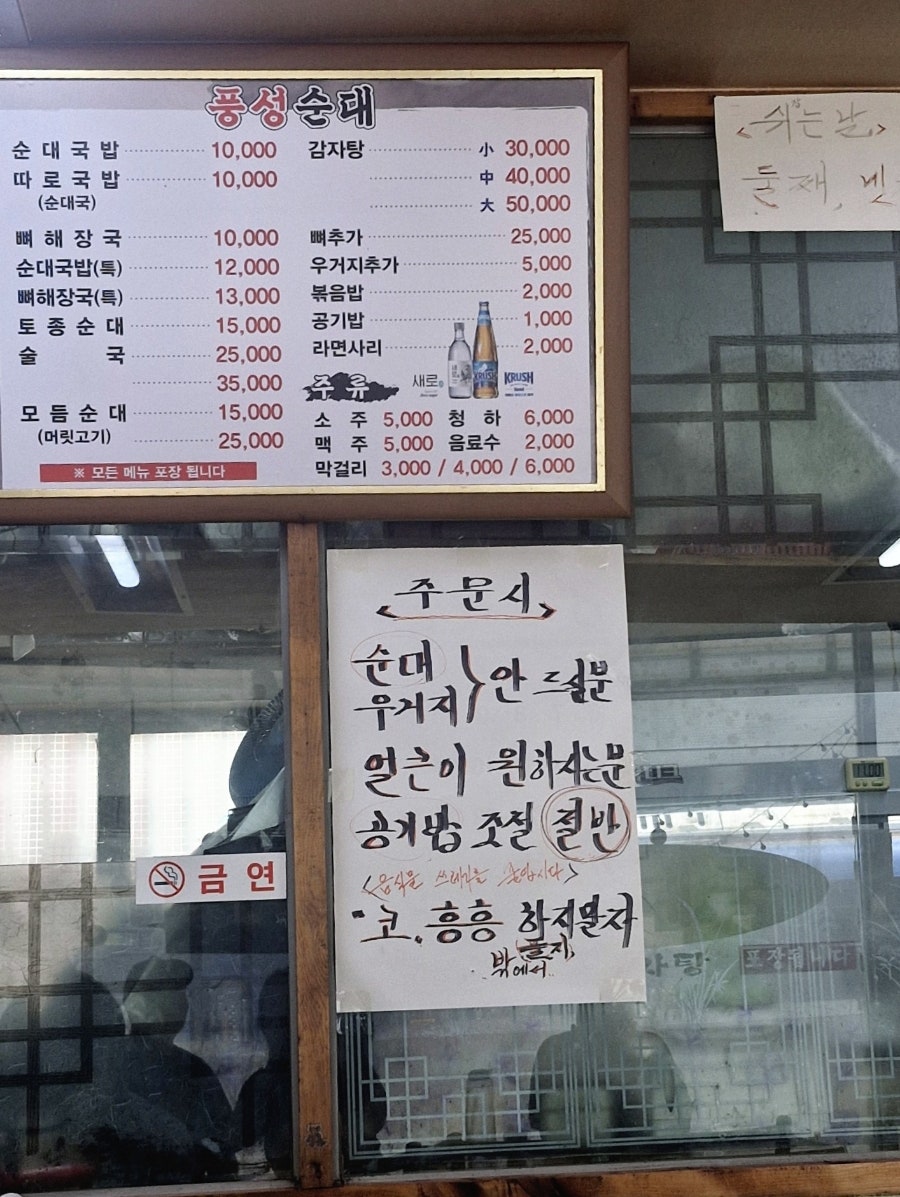 풍성순대
순대국밥 10,000
따로국밥 10,000
(순대국)
뼈해장국 10,000
순대국밥(특) 12,000
뼈해장국(특) 13,000
토종순대 15,000
술국 25,000
35,000
모듬순대 15,000
(머릿고기) 25,000
※ 모든 메뉴 포장 됩니다
감자탕 小 30,000
中 40,000
大 50,000
뼈추가 25,000
우거지추가 5,000
볶음밥 2,000
공기밥 1,000
라면사리 2,000
주류 새로 KRUSH
소주 5,000 청하 6,000
맥주 5,000 음료수 2,000
막걸리 3,000 / 4,000 / 6,000
<쉬는날>
둘째, 넷
<주문시>
순대
우거지 } 안 드실분
얼큰이 원하시는분
공기밥 조절 절반
<음식물 쓰레기를 줄입시다>
코. 흥흥 하지말자
밖에서
금연
11:00
포장됩니다